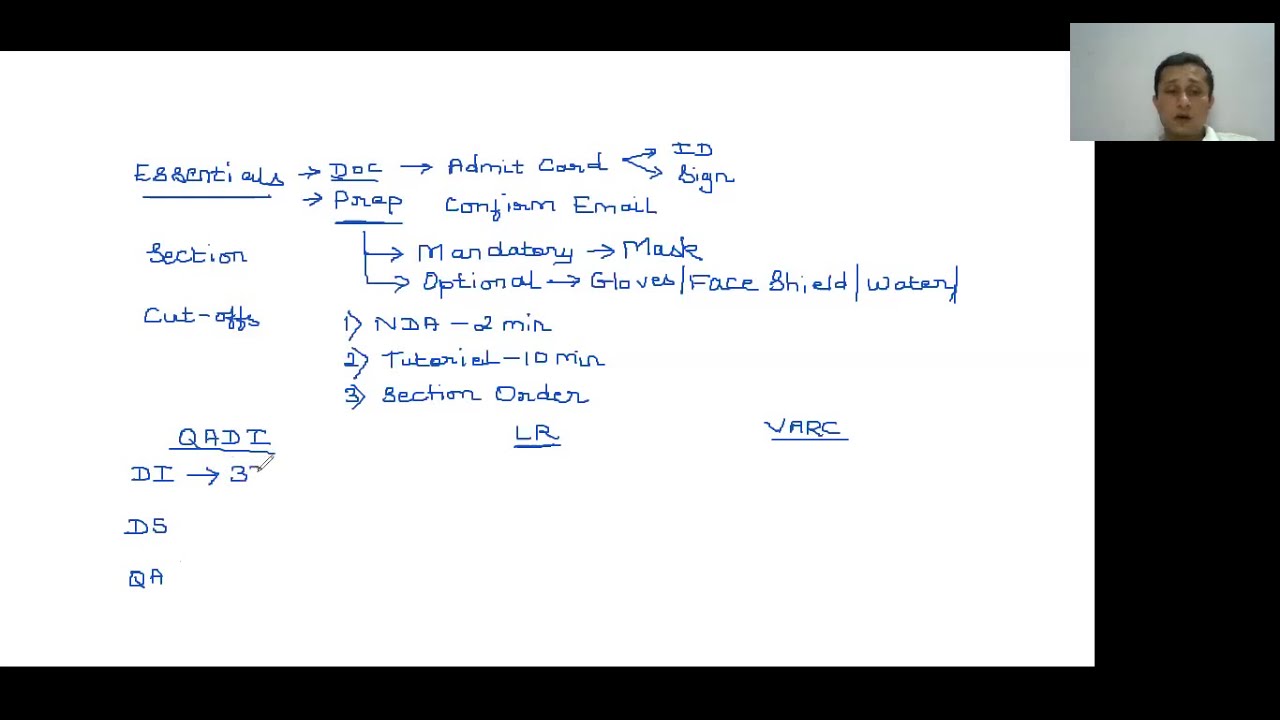 Essentials → Doc → Admit Card → ID
→ Sign
→ Prep Confirm Email
Section → Mandatory → Mask
→ Optional → Gloves/Face Shield/Water/
Cut-offs 1) NDA - 2 min
2) Tutorial - 10 min
3) Section Order
QADI LR VARC
DI → 3
DS
QA